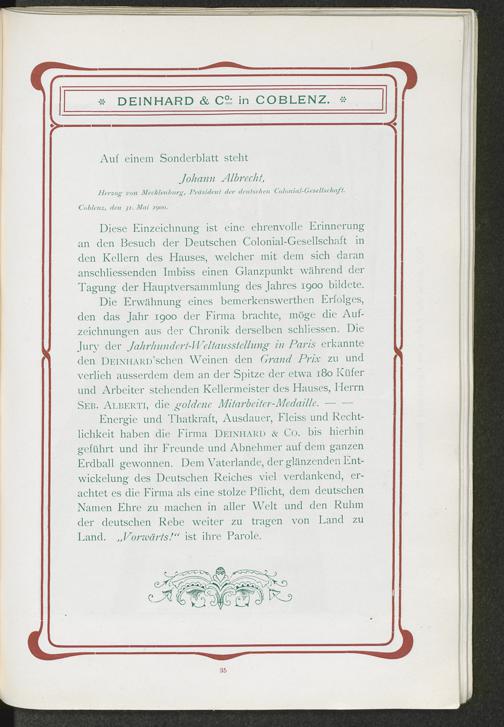 * DEINHARD & Co. in COBLENZ. *
Auf einem Sonderblatt steht
Johann Albrecht,
Herzog von Mecklenburg, Präsident der deutschen Colonial-Gesellschaft.
Coblenz, den 31. Mai 1900.
Diese Einzeichnung ist eine ehrenvolle Erinnerung
an den Besuch der Deutschen Colonial-Gesellschaft in
den Kellern des Hauses, welcher mit dem sich daran
anschliessenden Imbiss einen Glanzpunkt während der
Tagung der Hauptversammlung des Jahres 1900 bildete.
Die Erwähnung eines bemerkenswerthen Erfolges,
den das Jahr 1900 der Firma brachte, möge die Auf-
zeichnungen aus der Chronik derselben schliessen. Die
Jury der Jahrhundert-Weltausstellung in Paris erkannte
den DEINHARD'schen Weinen den Grand Prix zu und
verlieh ausserdem dem an der Spitze der etwa 180 Küfer
und Arbeiter stehenden Kellermeister des Hauses, Herrn
SEB. ALBERTI, die goldene Mitarbeiter-Medaille. — —
Energie und Thatkraft, Ausdauer, Fleiss und Recht-
lichkeit haben die Firma DEINHARD & Co. bis hierhin
geführt und ihr Freunde und Abnehmer auf dem ganzen
Erdball gewonnen. Dem Vaterlande, der glänzenden Ent-
wickelung des Deutschen Reiches viel verdankend, er-
achtet es die Firma als eine stolze Pflicht, dem deutschen
Namen Ehre zu machen in aller Welt und den Ruhm
der deutschen Rebe weiter zu tragen von Land zu
Land. „Vorwärts!“ ist ihre Parole.
35